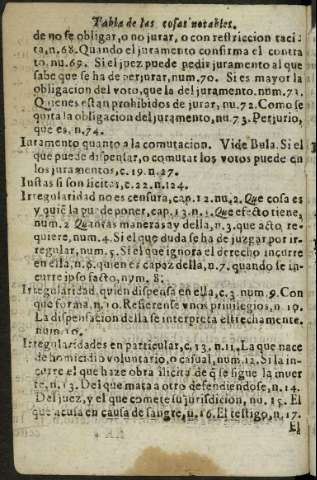 Tabla de las cosas notables.
de no se obligar, o no jurar, o con restriccion tacita
ta, n.68. Quando el juramento confirma el contra
to, nu.69. Si el juez puede pedir juramento al que
sabe que se ha de perjurar, num.70. Si es mayor la
obligacion del voto, que la del juramento. num.71.
Quienes estan prohibidos de jurar, nu.72. Como se
quita la obligacion del juramento, nu.73. Perjurio,
que es, n.74.
Juramento quanto a la comutacion. Vide Bula. Si el
que puede dispensar, o comutar los votos puede en
los juramentos, c.19. n.27.
Iustas si son licitas, c.22. n.124.
Irregularidad no es censura, cap.12. nu.2. Que cosa es
y quiẽ la puede poner, cap.13. n.1. Que efecto tiene,
num.2 Quantas maneras ay della, n.3. que acto re-
quiere, num.4. Si el que duda se ha de juzgar por ir-
regular, num.5. Si el que ignora el derecho incurre
en ella, n.6. quien es capaz della, n.7. quando se in-
curre ipso facto, num.8.
Irregularidad, quien dispensa en ella, c.3 num.9. Con
que forma, n.10. Refierense vnos priuilegios, n.19.
La dispensacion della se interpreta estrechamente.
num.10.
Irregularidades en particular, c.13. n.11. La que nace
de homicidio voluntario, o casual, num.12. Si la in-
curre el que haze obra ilicita de q̃ se sigue la muer
te, n.13. Del que mata a otro defendiendose, n.14.
Del juez, y el que comete su jurisdicion, nu.15. El
que acusa en causa de sangre, n.16. El testigo, n.17.
El